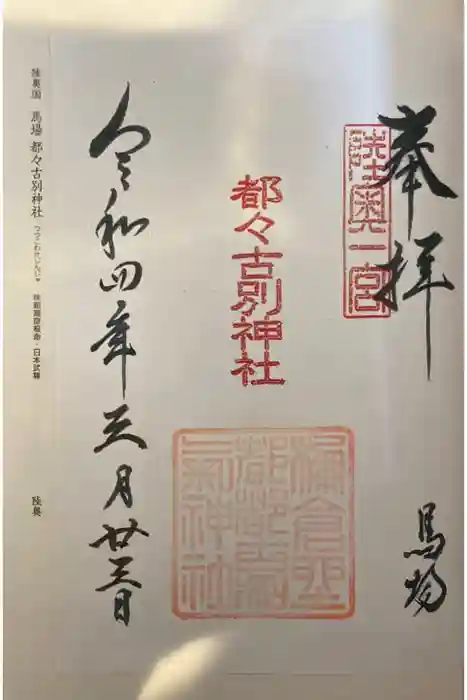 奉拝
陸奥一宮
馬場
都々古別神社
令和四年三月廿三日
陸奥国 馬場 都々古別神社 つつこわけじんじゃ 味耜高彦根命・日本武尊
陸奥